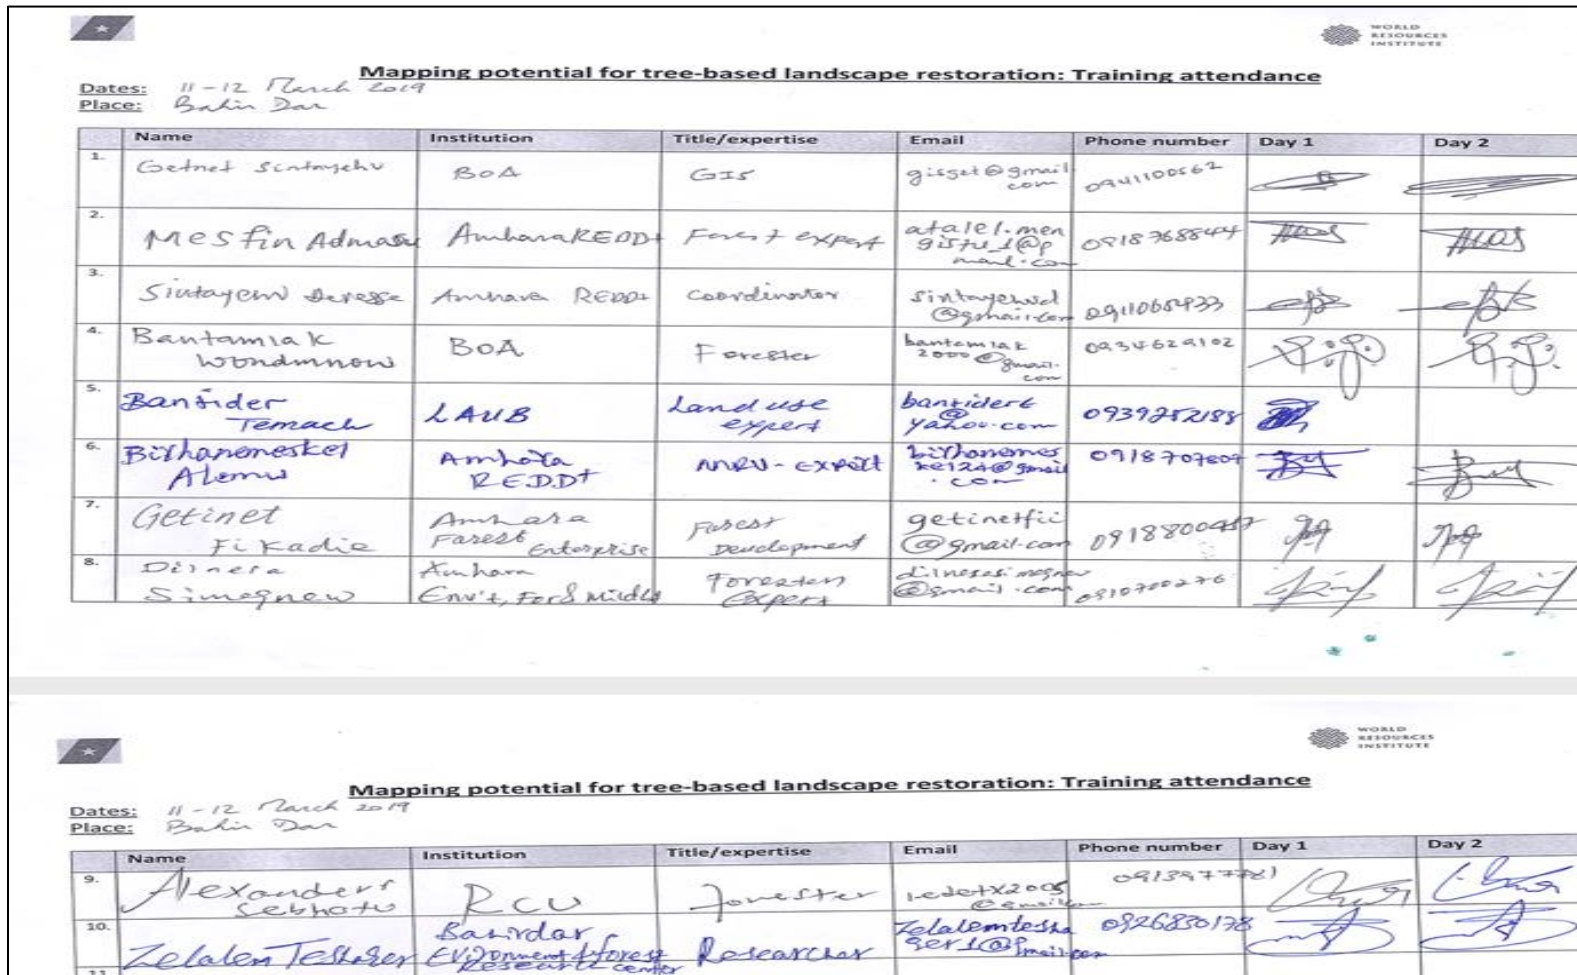 WORLD
RESOURCES
INSTITUTE
Mapping potential for tree-based landscape restoration: Training attendance
Dates: 11-12 March 2019
Place: Bahir Dar
Name Institution Title/expertise Email Phone number Day 1 Day 2
1. Getnet Sintayehu BoA GIS gisget@gmail
com 0941100562
2. Mesfin Admasu Amhara REDD+ Forest expert atalel.men
gistu1@g
mail.com 0918768844
3. Sintayehu Deresse Amhara REDD+ Coordinator sintayehud
@gmail.com 09110654933
4. Bantamlak
Wondmnow BoA Forester bantamlak
2000@gmail.
com 0934629102
5. Banfider
Temach LAUB Land use
expert banfidert
@
yahoo.com 0939252188
6. Birhanemeskel
Alemu Amhara
REDD+ MRV-Expert birhanemes
kel24@gmail
.com 0918707807
7. Getinet
Fikadie Amhara
Forest
Enterprise Forest
Development getinetfii
@gmail.com
8. Dilnesa
Simegnew Amhara
Env't, For & Wildlife Forestery
Expert dilnesasimegnew
@gmail.com 0910700276
WORLD
RESOURCES
INSTITUTE
Mapping potential for tree-based landscape restoration: Training attendance
Dates: 11-12 March 2019
Place: Bahir Dar
Name Institution Title/expertise Email Phone number Day 1 Day 2
9. Alexanders
Sebhatu RCU Forester
10. Zelalem Teshager Bahirdar
Environment & forest
Research center Researcher Zelalemtesha
ger1@gmail.com 0926830178
11